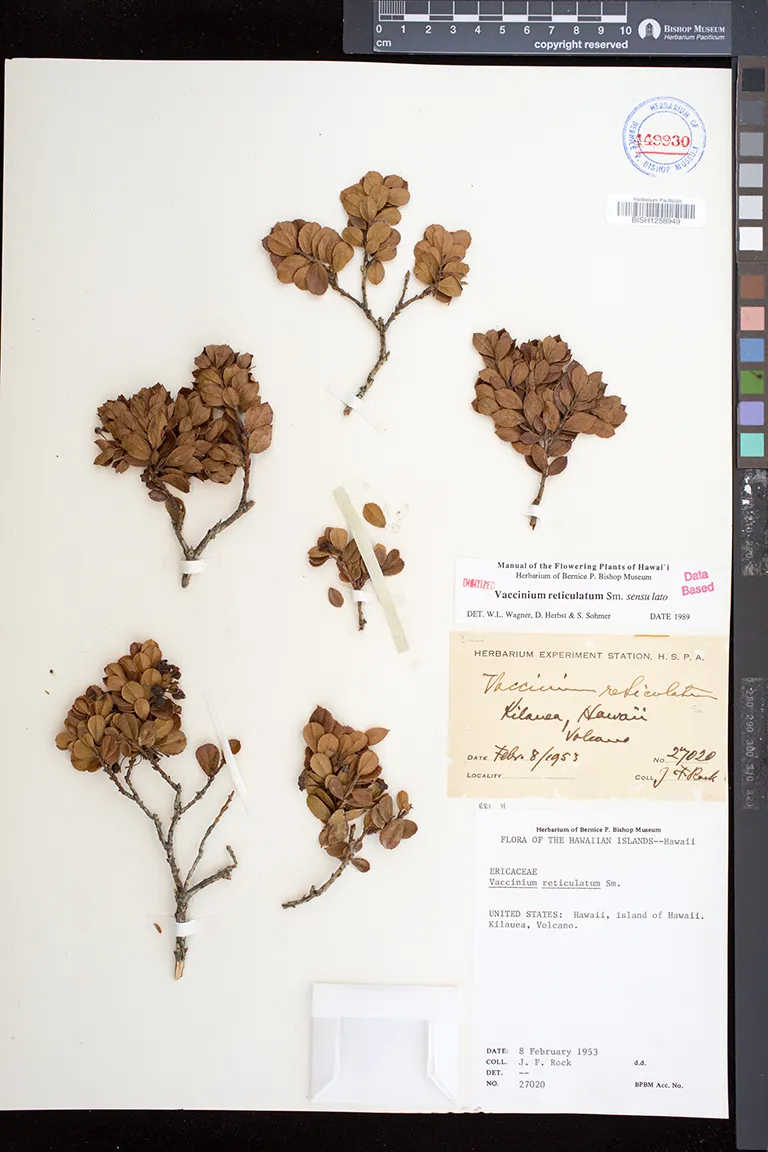 0 1 2 3 4 5 6 7 8 9 10
cm
copyright reserved
BISHOP MUSEUM
Herbarium Pacificum
HERBARIUM OF
BERNICE P. BISHOP MUSEUM
149930
Herbarium Pacificum
BISH1258949
Manual of the Flowering Plants of Hawai`i
Herbarium of Bernice P. Bishop Museum
DIGITIZED
Data Based
Vaccinium reticulatum Sm. sensu lato
DET. W.L. Wagner, D. Herbst & S. Sohmer DATE 1989
HERBARIUM EXPERIMENT STATION, H. S. P. A.
Vaccinium reticulatum
Sm
Kilauea, Hawaii
Volcano
DATE Febr. 8/1953 No. 27020
LOCALITY COLL. J F Rock
ERI H
Herbarium of Bernice P. Bishop Museum
FLORA OF THE HAWAIIAN ISLANDS--Hawaii
ERICACEAE
Vaccinium reticulatum Sm.
UNITED STATES: Hawaii, island of Hawaii.
Kilauea, Volcano.
DATE: 8 February 1953
COLL. J. F. Rock d.d.
DET. --
NO. 27020 BPBM Acc. No.